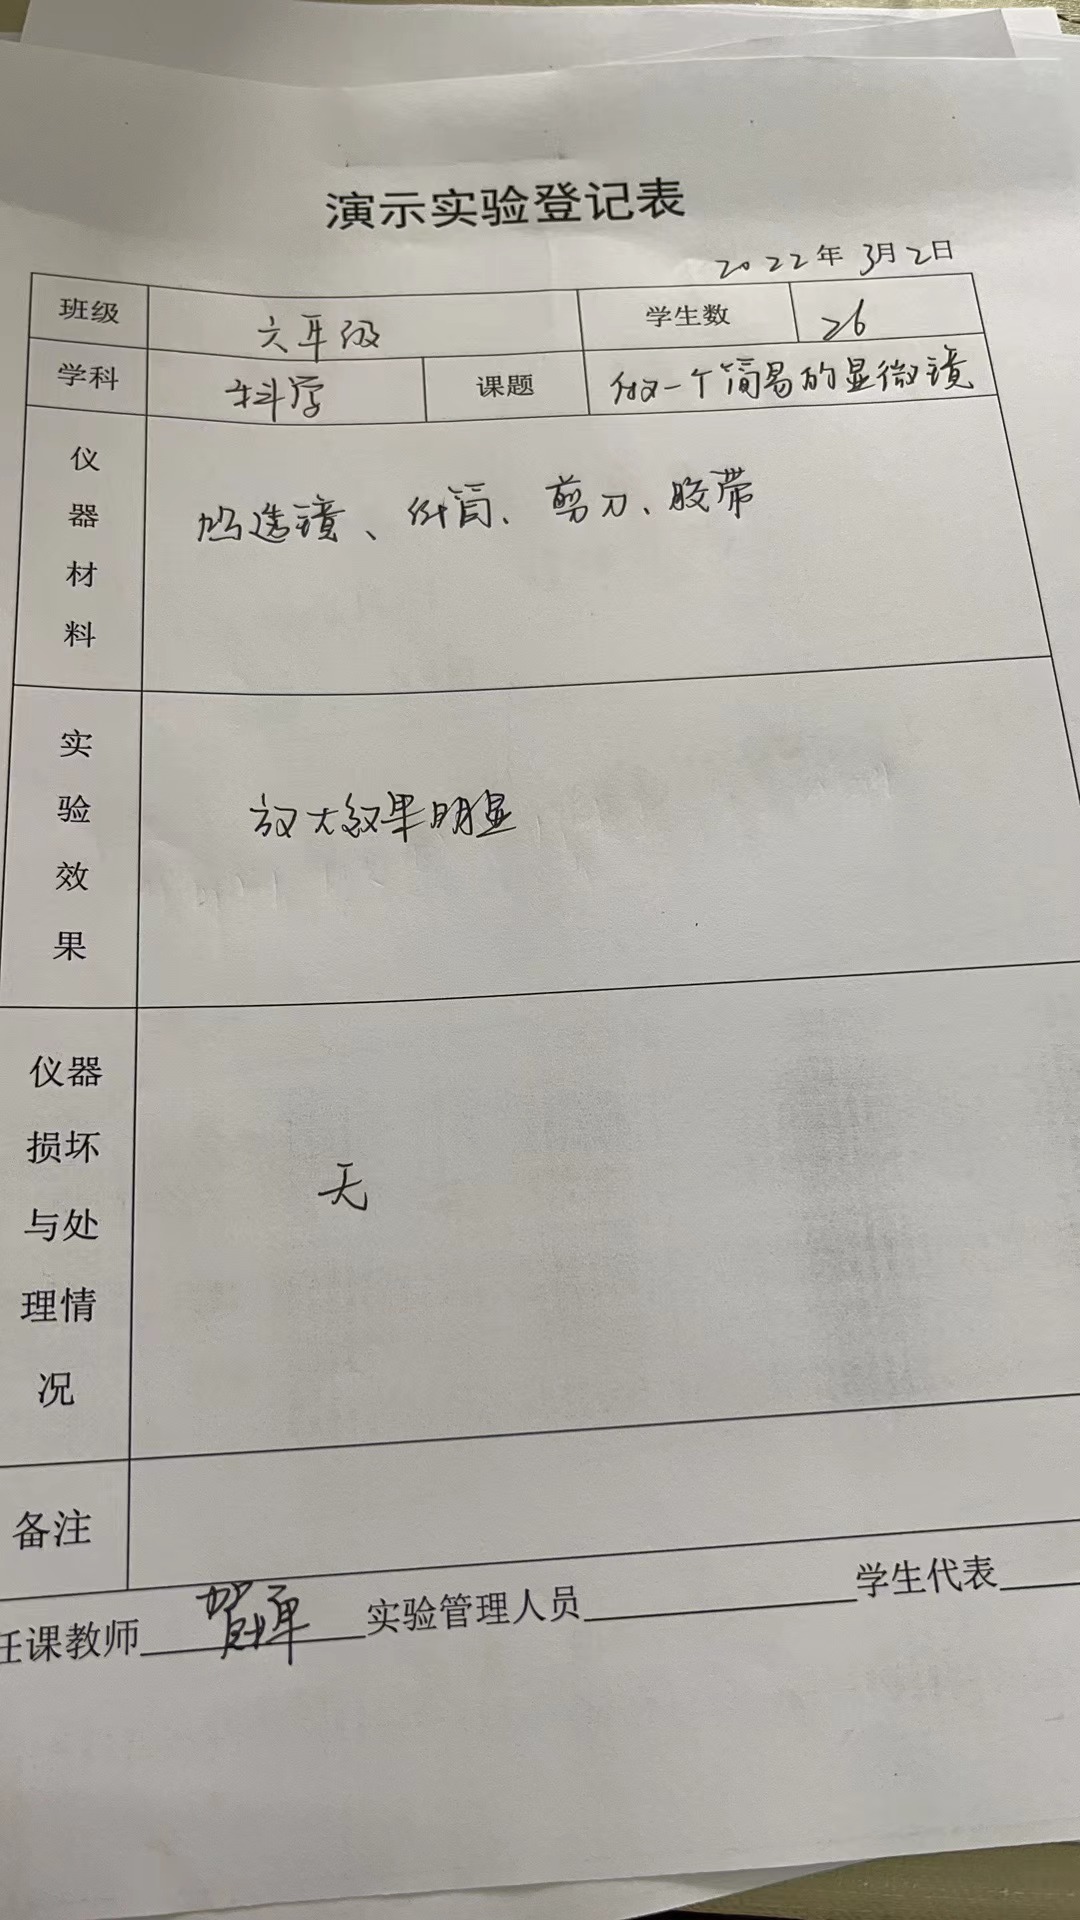 演示实验登记表
2022年3月2日
班级 六年级 学生数 26
学科 科学 课题 做一个简易的显微镜
仪器材料 凸透镜、纸筒、剪刀、胶带
实验效果 放大效果明显
仪器损坏与处理情况 无
备注
任课教师 贺 实验管理人员 学生代表